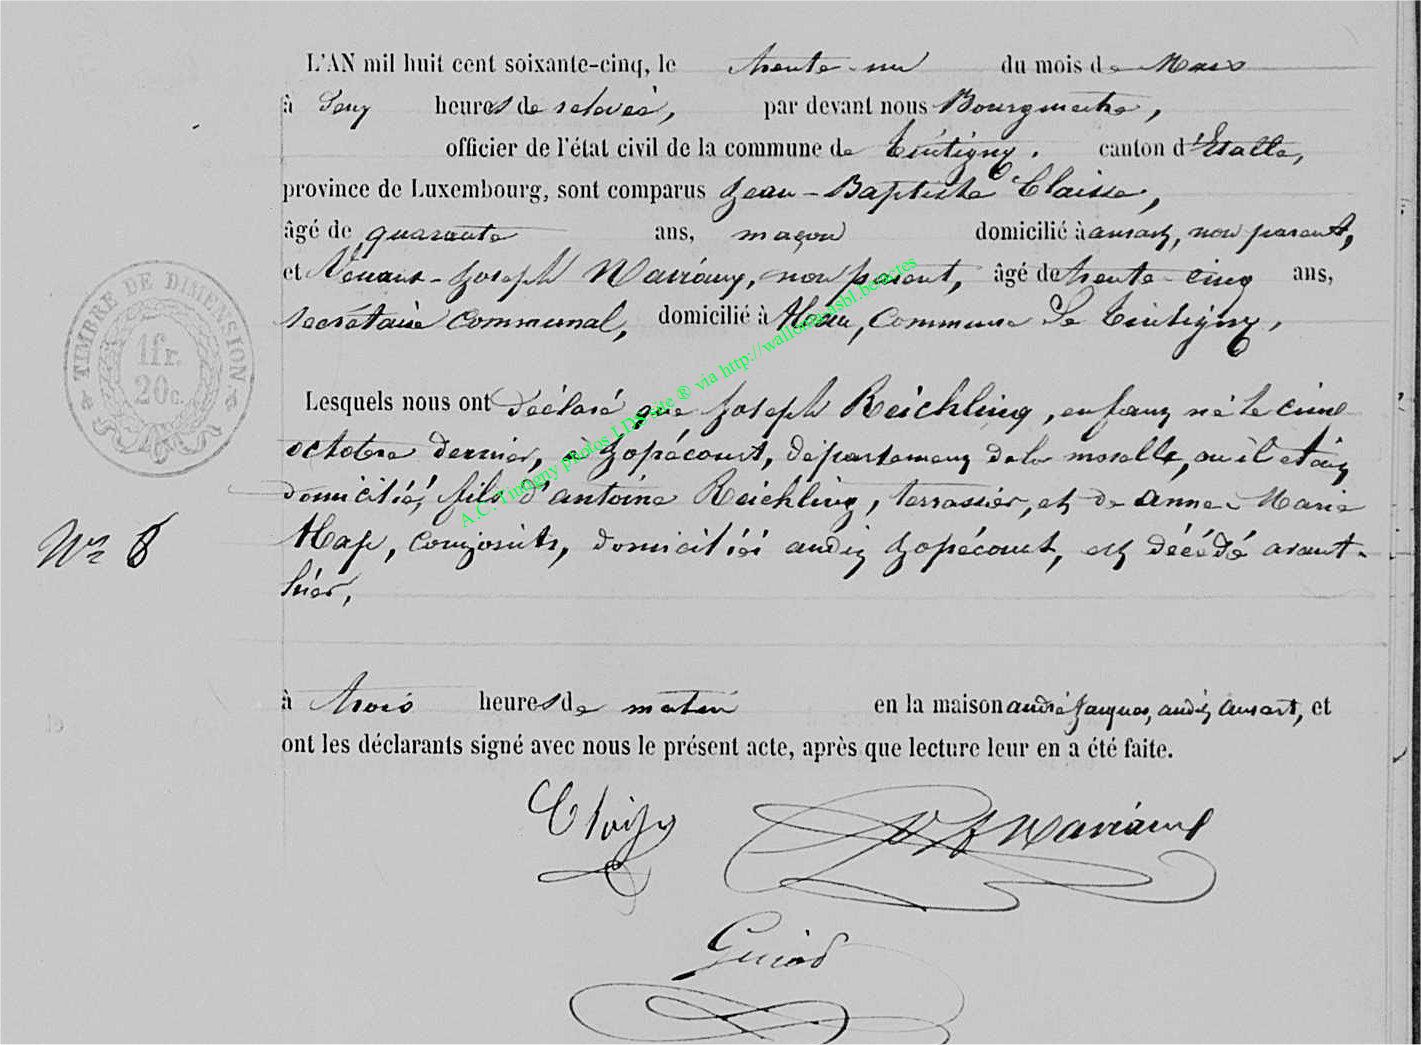 L'AN mil huit cent soixante-cinq, le trente-un du mois de Mars
à deux heures de relevée, par devant nous Bourgmestre,
officier de l'état civil de la commune de Tintigny, canton d'Etalle,
province de Luxembourg, sont comparus Jean-Baptiste Claisse,
âgé de quarante ans, maçon domicilié à ansart, non parent,
et Joseph non parent, âgé de trente-cinq ans,
secrétaire communal, domicilié à commune de Tintigny,
Lesquels nous ont déclaré que Joseph Reichling, enfant né le cinq
octobre dernier, à Jopécourt, département de la moselle, où il était
domicilié, fils d'antoine Reichling, terrassier, et de anne-Marie
conjoints, domiciliés audit Jopécourt, est décédé avant-
hier,
à trois heures de matin en la maison andré Jacques, audit ansart, et
ont les déclarants signé avec nous le présent acte, après que lecture leur en a été faite.
N° 8
TIMBRE DE DIMENSION
1 fr.
20 c.
A.C. Tintigny photos LDS site ® via http://wallonia.asbl.be/actes